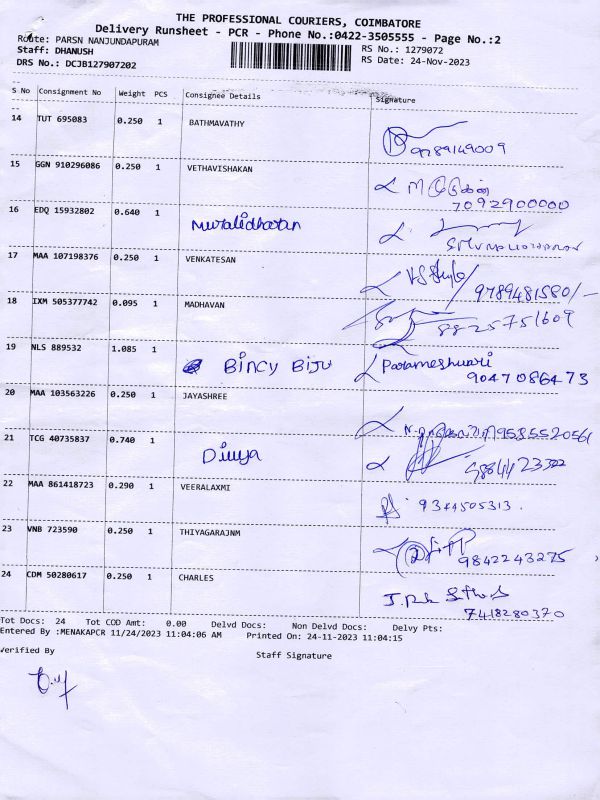 THE PROFESSIONAL COURIERS, COIMBATORE
Delivery Runsheet - PCR - Phone No.:0422-3505555 - Page No.:2
Route: PARSN NANJUNDAPURAM
RS No.: 1279072
Staff: DHANUSH
RS Date: 24-Nov-2023
DRS No.: DCJB127907202
S No Consignment No Weight PCS Consignee Details Signature
14 TUT 695083 0.250 1 BATHMAVATHY
9789149009
15 GGN 910296086 0.250 1 VETHAVISHAKAN
7092900000
16 EDQ 15932802 0.640 1 Muralidharan
17 MAA 107198376 0.250 1 VENKATESAN
9789481580/-
18 IXM 505377742 0.095 1 MADHAVAN
8825751609
19 NLS 889532 1.085 1 BINCY BIJU Parameshwari
9047086473
20 MAA 103563226 0.250 1 JAYASHREE
9585520561
21 TCG 40735837 0.740 1 Divya
22 MAA 861418723 0.290 1 VEERALAXMI
9344505313
23 VNB 723590 0.250 1 THIYAGARAJNM
9842243275
24 CDM 50280617 0.250 1 CHARLES
7418280370
Tot Docs: 24 Tot COD Amt: 0.00 Delvd Docs: Non Delvd Docs: Delvy Pts:
Entered By :MENAKAPCR 11/24/2023 11:04:06 AM Printed On: 24-11-2023 11:04:15
Verified By
Staff Signature